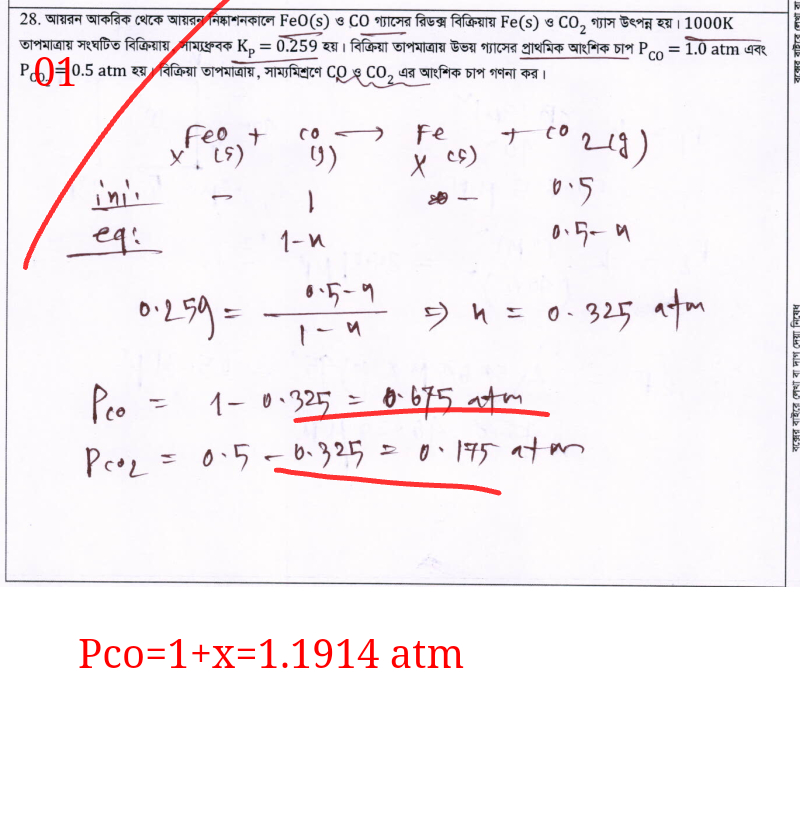 28. আয়রন আকরিক থেকে আয়রন নিষ্কাশনকালে FeO(s) ও CO গ্যাসের রিডক্স বিক্রিয়ায় Fe(s) ও CO₂ গ্যাস উৎপন্ন হয়। 1000K
তাপমাত্রায় সংঘটিত বিক্রিয়ায়, সাম্যধ্রুবক Kₚ = 0.259 হয়। বিক্রিয়া তাপমাত্রায় উভয় গ্যাসের প্রাথমিক আংশিক চাপ P_CO = 1.0 atm এবং
P_CO₂ = 0.5 atm হয়। বিক্রিয়া তাপমাত্রায়, সাম্যমিশ্রণে CO ও CO₂ এর আংশিক চাপ গণনা কর।
01
FeO + CO → Fe + CO2(g)
x (s) (g) x (s)
ini: - 1 - 0.5
eq: 1-x 0.5-x
0.259 = (0.5-x)/(1-x) ⇒ x = 0.325 atm
Pco = 1- 0.325 = 0.675 atm
Pco2 = 0.5 - 0.325 = 0.175 atm
Pco=1+x=1.1914 atm